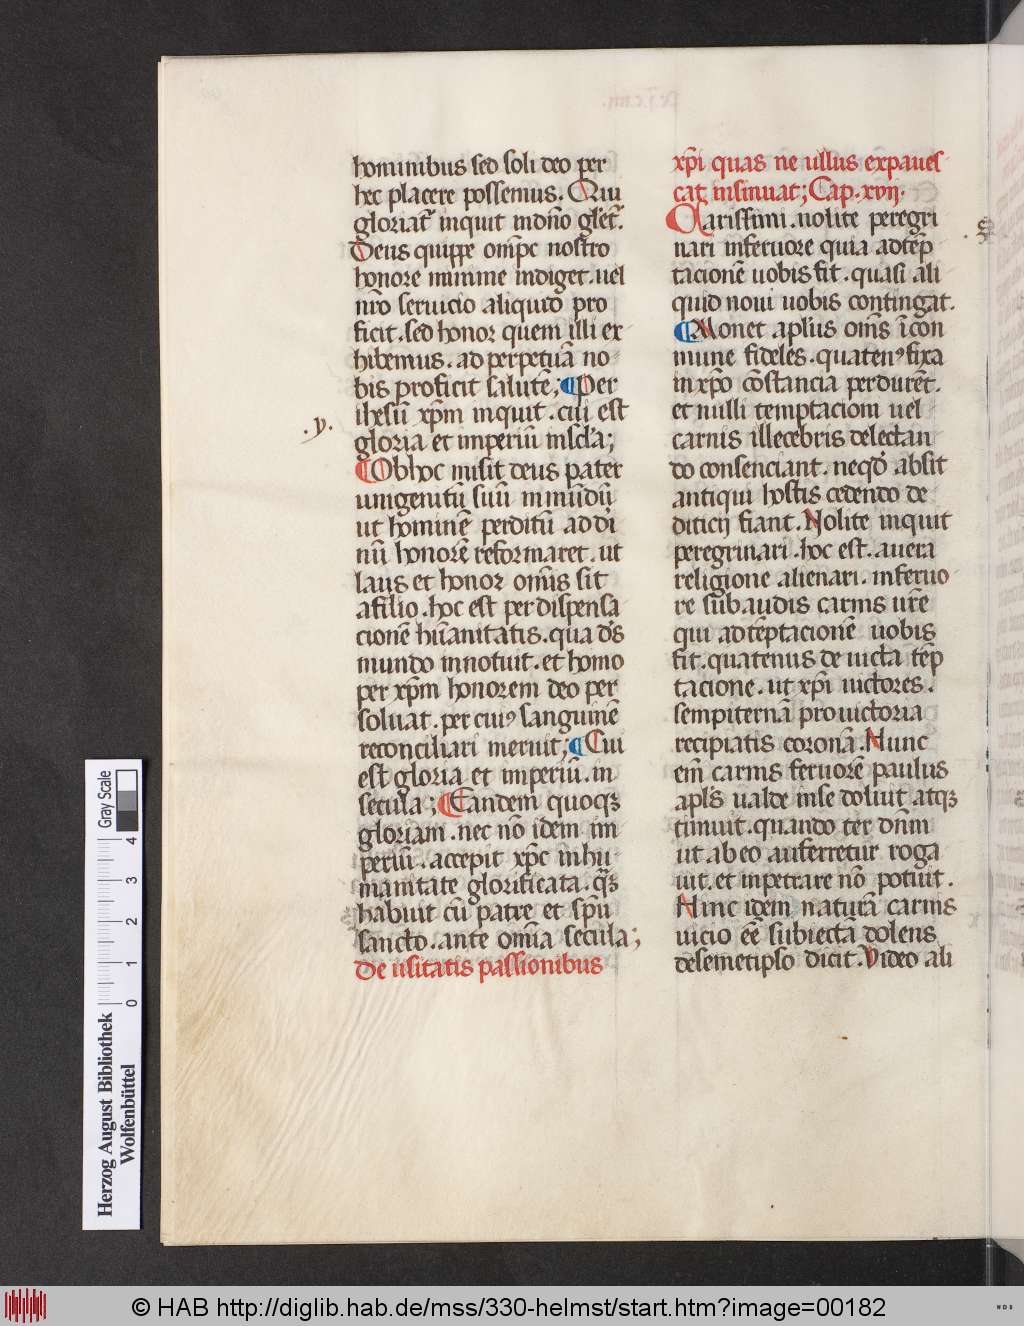 hominibus sed soli deo per
hec placere possemus. Qui
gloriat᷒ inquit in dn̄o gl̄et᷒.
Deus quippe om̄pc nostro
honore minime indiget. uel
nr̄o seruicio aliquid pro
ficit. sed honor quem illi ex
hibemus. ad perpetuā no
bis proficit salutē; ¶ Per
ihesū xp̄m inquit. cui est
.y.
gloria et imperiū in scl̄a;
¶ Ob hoc misit deus pater
unigenitū suū in mūdū
ut hominē perditū ad di
nū honorē reformaret. ut
laus et honor om̄is sit
a filio. hoc est per dispensa
cionē hūanitatis. qua ds̄
mundo innotuit. et homo
per xp̄m honorem deo per
soluat. per cuiꝰ sanguinē
reconciliari meruit; ¶ Cui
est gloria et imperiū. in
secula; ¶ Eandem quoqꝫ
gloriam. nec nō idem im
periū. accepit xp̄c in hu
manitate glorificata. qͣs
habuit cū patre et sp̄u
sancto. ante om̄ia secula;
De usitatis passionibus
xp̄i quas ne ullus expaues
cat insinuat; Cap. xvij.
Karissimi. nolite peregri
nari in feruore quia ad tēp
tacionē uobis fit. quasi ali
quid noui uobis contingat.
¶ Monet apl̄us om̄s ī con
mune fideles. quatenꝰ fixa
in xp̄o cōstancia perdurēt.
et nulli temptacioni uel
carnis illecebris delectan
do consenciant. neqd̄ absit
antiqui hostis cedendo de
diticij fiant. Nolite inquit
peregrinari. hoc est. a uera
religione alienari. in feruo
re subaudis carnis ur̄e
qui ad tēptacionē uobis
fit. quatenus deuicta tēp
tacione. ut xp̄i uictores.
sempiternā pro uictoria
recipiatis coronā. Nunc
em̄ carnis feruorē paulus
apl̄s ualde in se doluit atqꝫ
timuit. quando ter dn̄m
ut ab eo auferretur roga
uit. et inpetrare nō potuit.
Hinc idem naturā carnis
uicio eē subiectā dolens
de semetipso dicit. Video ali
Herzog August Bibliothek
Wolfenbüttel
0 1 2 3 4
Gray Scale
© HAB http://diglib.hab.de/mss/330-helmst/start.htm?image=00182